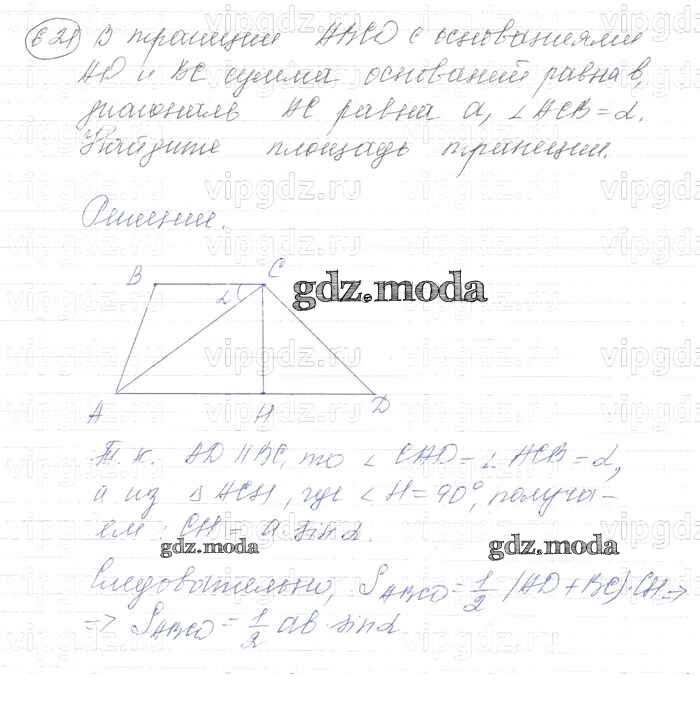 621 В трапеции ABCD с основаниями
AD и BC сумма оснований равна b,
диагональ AC равна a, ∠ACB = α.
Найдите площадь трапеции.
vipgdz.ru vipgdz.ru vipgdz.ru
Решение.
B C
α
gdz.moda
A H D
Т. к. AD || BC, то ∠CAD = ∠ACB = α,
а из △ACH, где ∠H = 90°, получа-
ем: CH = a sin α.
gdz.moda gdz.moda
Следовательно, S_ABCD = 1/2 (AD + BC)·CH ⇒
⇒ S_ABCD = 1/2 ab sin α